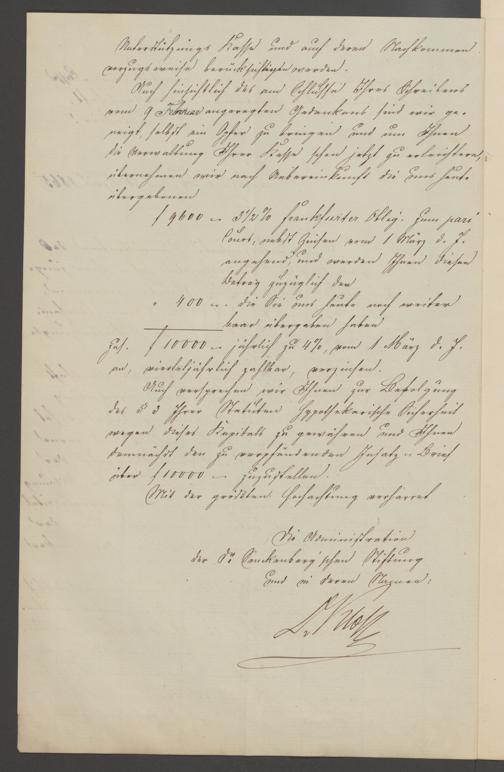 Unterstützungs Kasse und auch deren Nachkommen
vorzugsweise berücksichtigt werden.
Auch hinsichtlich des am Schlusse Ihres Schreibens
vom 9 Februar angeregten Gedankens sind wir ge-
neigt, selbst ein Opfer zu bringen und um Ihnen
die Verwaltung Ihrer Kasse schon jetzt zu erleichtern,
übernehmen wir nach Uebereinkunft die uns heute
übergebenen
f 9600 — 3 1/2 % Frankfurter Oblig. zum pari
Cours, nebst Zinsen vom 1 März d. J.
angehend, und werden Ihnen diesen
Betrag zuzüglich der
" 400 — die Sie uns heute noch weiter
baar übergeben haben
zus. f 10000 — jährlich zu 4%, vom 1 März d. J.
an, vierteljährlich zahlbar, verzinsen.
Auch versprechen wir Ihnen zur Befolgung
des § 3 Ihrer Statuten hypothekarische Sicherheit
wegen dieses Kapitals zu gewähren und Ihnen
demnächst den zu verpfändenden Insatz-Brief
über f 10000 — zuzustellen.
Mit der größten Hochachtung verharret
Die Administration
der Dr. Senckenberg'schen Stiftung
und in deren Namen: